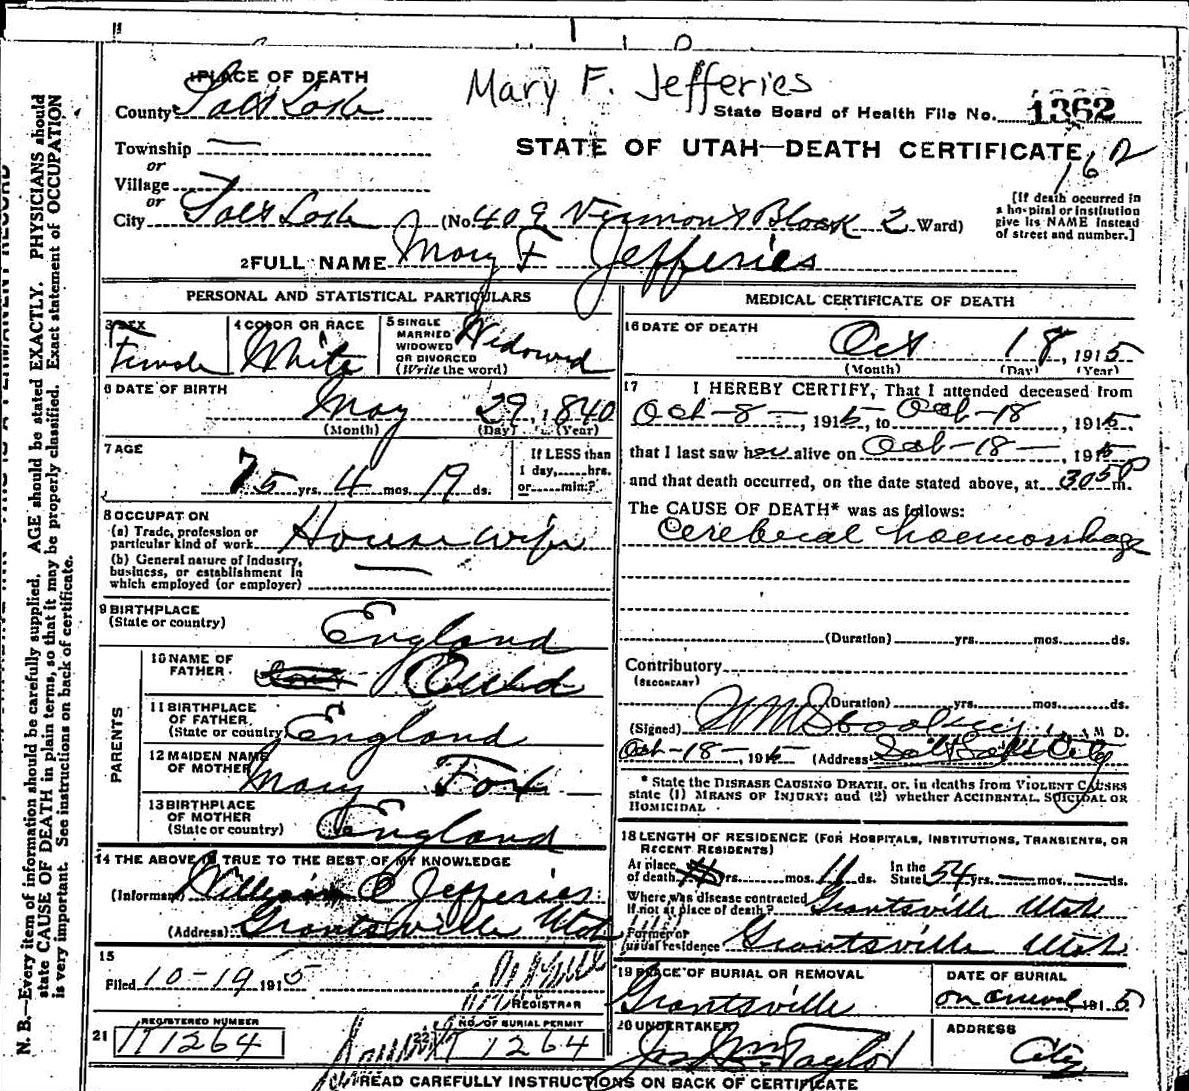 1 PLACE OF DEATH
Mary F. Jefferies
County Salt Lake
State Board of Health File No. 1362
Township —
STATE OF UTAH—DEATH CERTIFICATE
162
or
Village
or
City Salt Lake (No. 409 Vermont Block 2 Ward)
[If death occurred in
a hospital or institution
give its NAME instead
of street and number.]
2 FULL NAME Mary F Jefferies
PERSONAL AND STATISTICAL PARTICULARS
3 SEX
Female
4 COLOR OR RACE
White
5 SINGLE
MARRIED
WIDOWED
OR DIVORCED
(Write the word)
Widowed
6 DATE OF BIRTH
May 29, 1840
(Month) (Day) (Year)
7 AGE
75 yrs. 4 mos. 19 ds.
If LESS than
1 day, hrs.
or min.?
8 OCCUPATION
(a) Trade, profession or
particular kind of work House wife
(b) General nature of industry,
business, or establishment in
which employed (or employer) —
9 BIRTHPLACE
(State or country) England
PARENTS
10 NAME OF
FATHER
11 BIRTHPLACE
OF FATHER
(State or country) England
12 MAIDEN NAME
OF MOTHER Mary Fox
13 BIRTHPLACE
OF MOTHER
(State or country) England
14 THE ABOVE IS TRUE TO THE BEST OF MY KNOWLEDGE
(Informant) William C Jefferies
(Address) Grantsville Utah
15
Filed 10-19 1915
REGISTRAR
21 REGISTERED NUMBER
1264
22 NO. OF BURIAL PERMIT
1264
MEDICAL CERTIFICATE OF DEATH
16 DATE OF DEATH
Oct 18, 1915
(Month) (Day) (Year)
17 I HEREBY CERTIFY, That I attended deceased from
Oct-8-, 1915, to Oct-18, 1915,
that I last saw her alive on Oct-18-, 1915
and that death occurred, on the date stated above, at 305 P m.
The CAUSE OF DEATH* was as follows:
Cerebral haemorrhage
(Duration) yrs. mos. ds.
Contributory
(SECONDARY)
(Duration) yrs. mos. ds.
(Signed) M D.
Oct-18-, 1915 (Address) Salt Lake City
* State the DISEASE CAUSING DEATH, or, in deaths from VIOLENT CAUSES
state (1) MEANS OF INJURY; and (2) whether ACCIDENTAL, SUICIDAL OR
HOMICIDAL.
18 LENGTH OF RESIDENCE (FOR HOSPITALS, INSTITUTIONS, TRANSIENTS, OR
RECENT RESIDENTS)
At place
of death yrs. mos. 11 ds. In the
State 54 yrs. — mos. — ds.
Where was disease contracted
if not at place of death? Grantsville Utah
Former or
usual residence Grantsville Utah
19 PLACE OF BURIAL OR REMOVAL
Grantsville
DATE OF BURIAL
on arrival 1915
20 UNDERTAKER
Jos Wm Taylor
ADDRESS
City
READ CAREFULLY INSTRUCTIONS ON BACK OF CERTIFICATE
N. B.—Every item of information should be carefully supplied. AGE should be stated EXACTLY. PHYSICIANS should
state CAUSE OF DEATH in plain terms, so that it may be properly classified. Exact statement of OCCUPATION
is very important. See instructions on back of certificate.